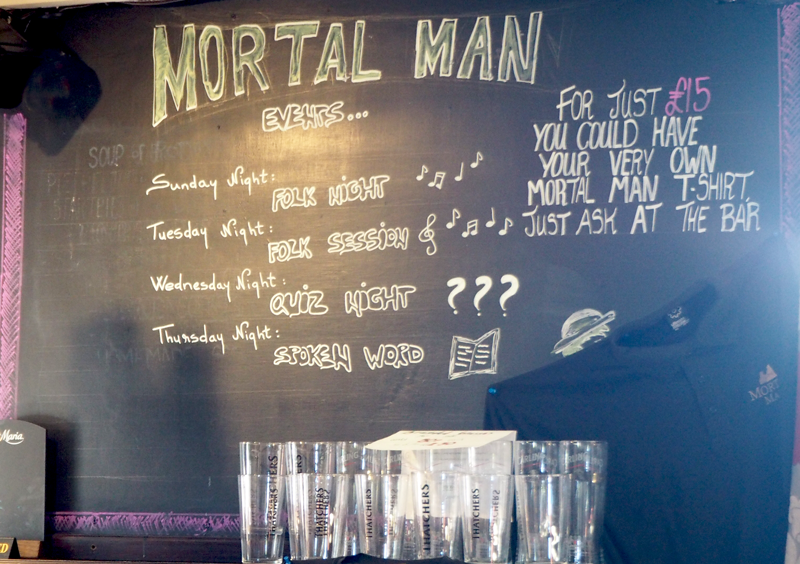 MORTAL MAN
EVENTS...
Sunday Night:
FOLK NIGHT
Tuesday Night:
FOLK SESSION
Wednesday Night:
QUIZ NIGHT ???
Thursday Night:
SPOKEN WORD
FOR JUST £15
YOU COULD HAVE
YOUR VERY OWN
MORTAL MAN T-SHIRT,
JUST ASK AT THE BAR
SOUP OF
Maria
THATCHERS
THATCHERS
THATCHERS
THATCHERS
THATCHERS
THATCHERS